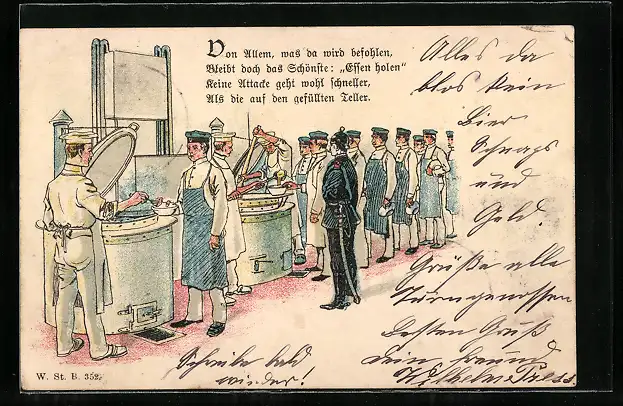 Von Allem, was da wird befohlen,
Bleibt doch das Schönste: „Essen holen“
Keine Attacke geht wohl schneller,
Als die auf den gefüllten Teller.
Alles da
blos kein
Bier
Schnaps
und
Geld.
Grüße alle
Turngenossen
Besten Gruß
Dein Freund
Wilhelm
Schreibe bald
wieder!
W. St. B. 352.